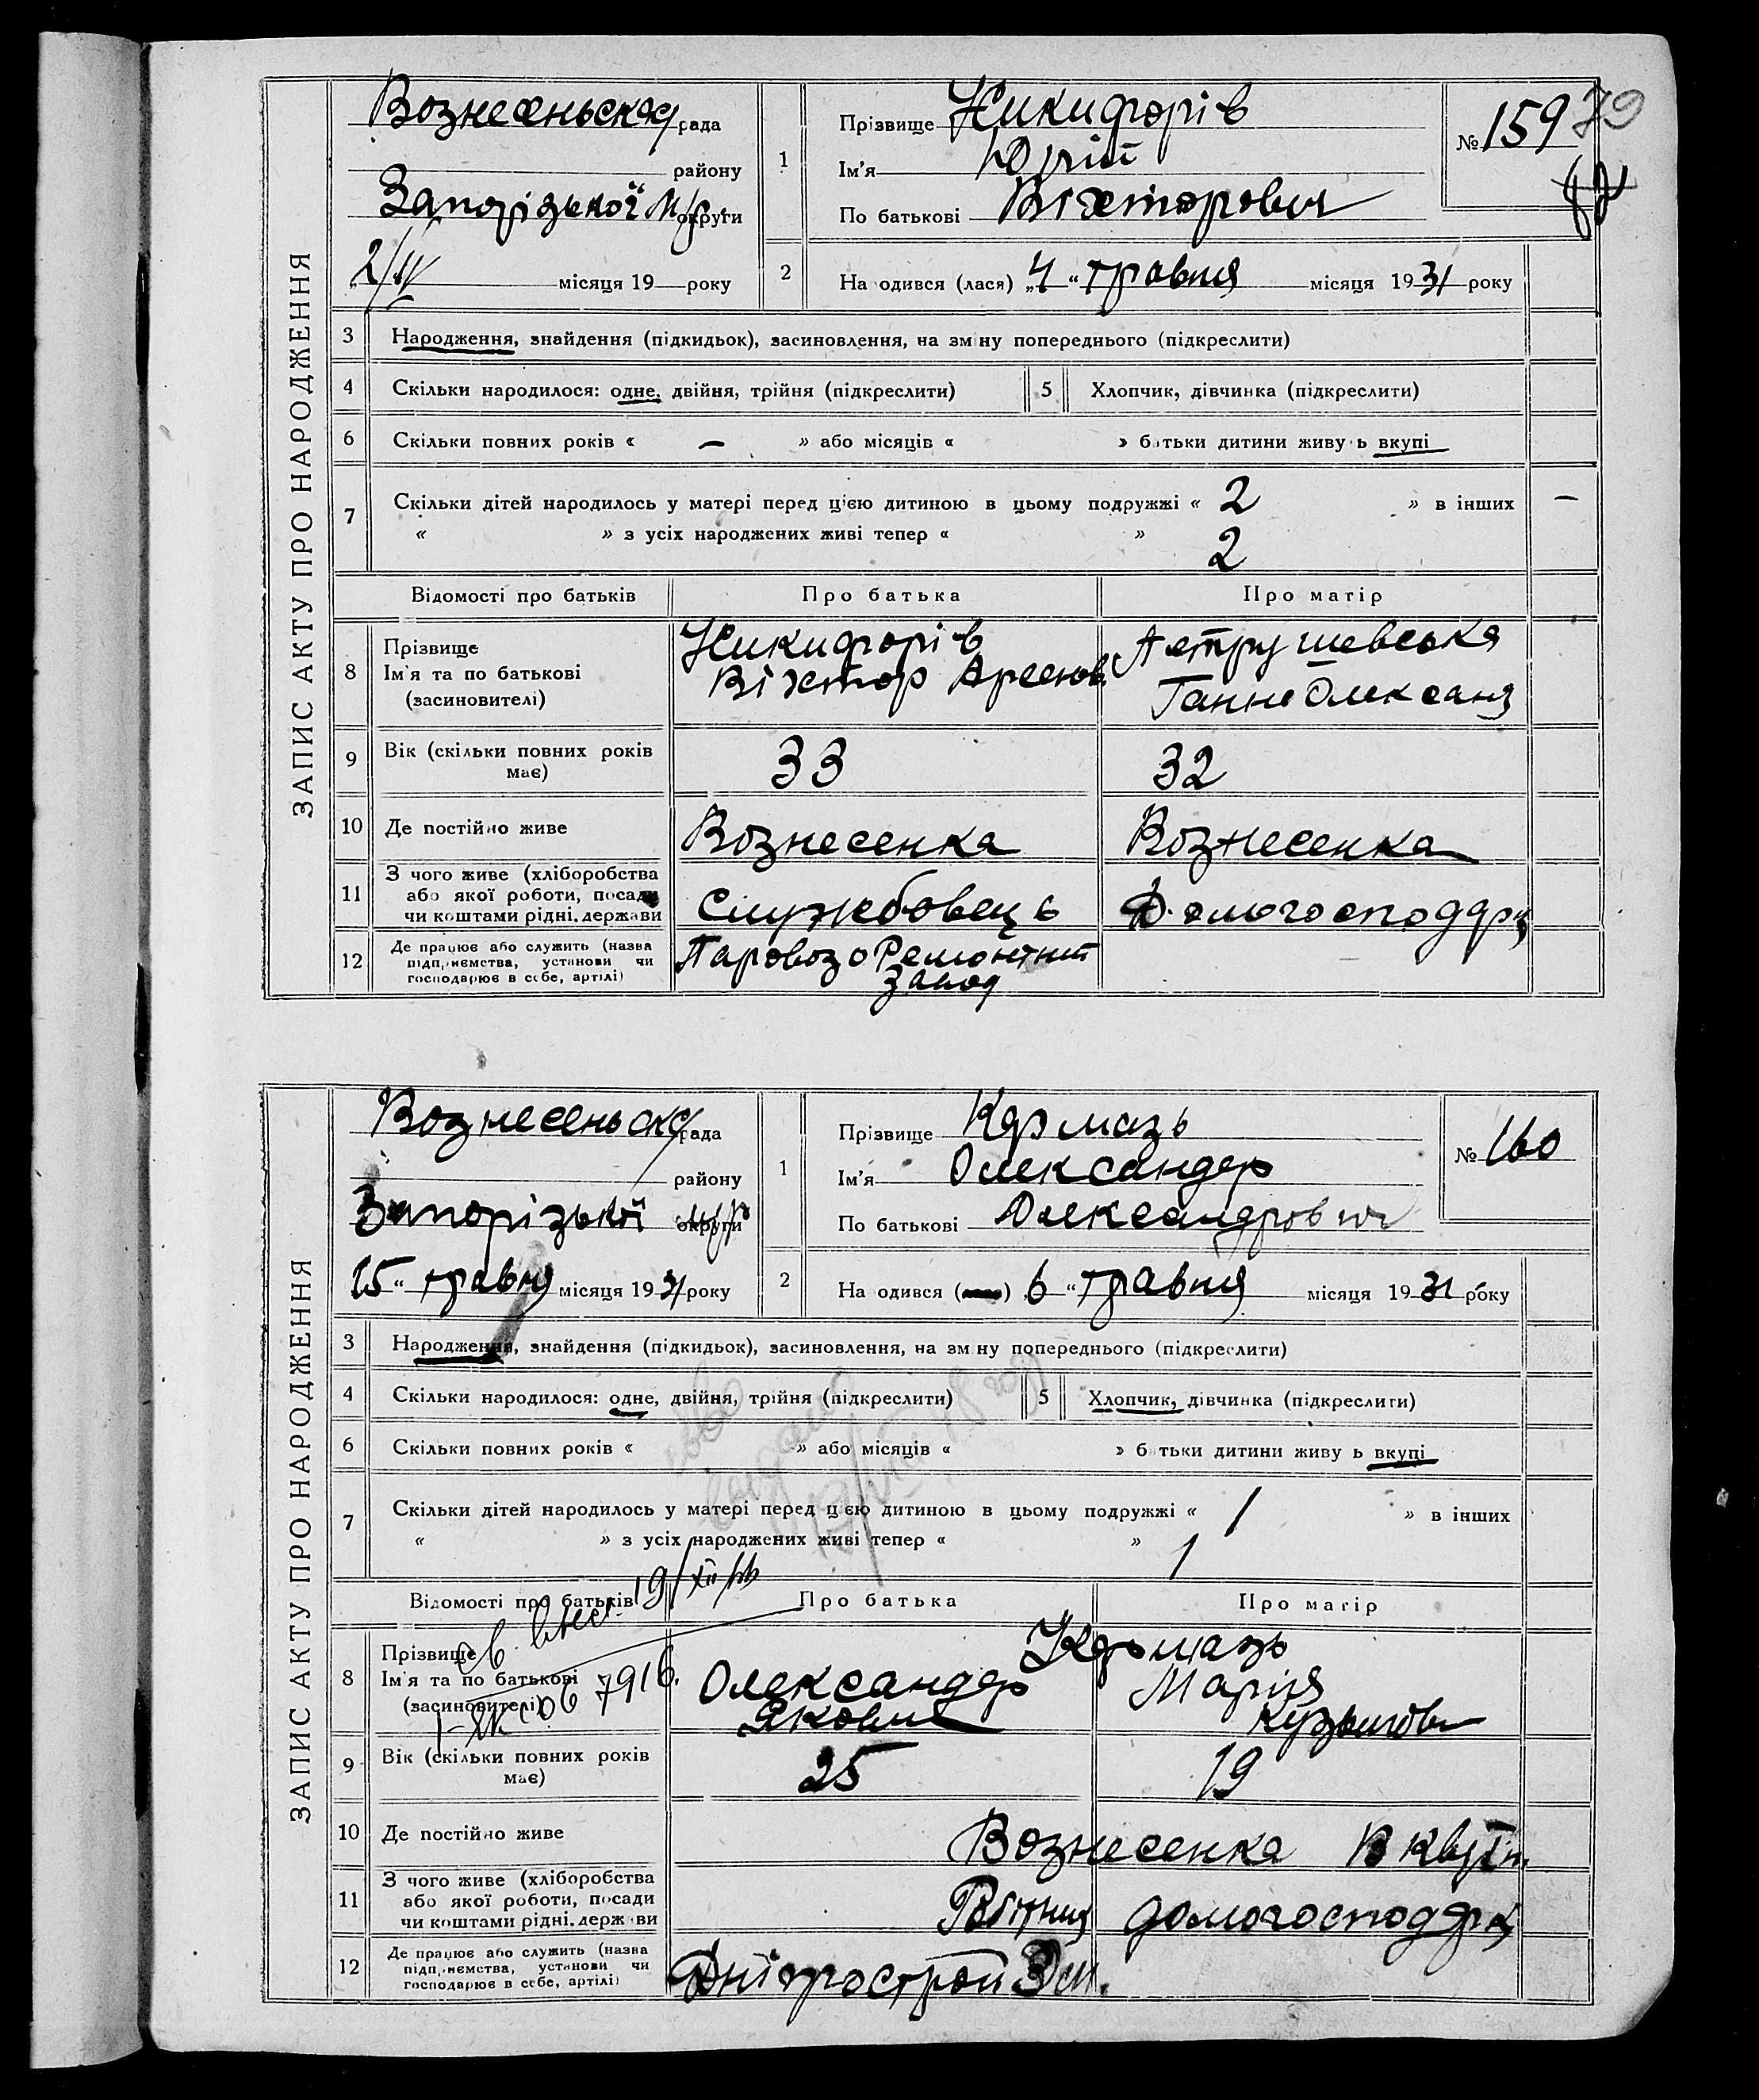 ЗАПИС АКТУ ПРО НАРОДЖЕННЯ
Вознесеньская рада
району
Запорізької м/р округи
2/VI місяця 19 року
1
Прізвище Никифорів
Ім'я Юрій
По батькові Вікторович
№ 159
79
2
На одився (лася) „4“ травня місяця 1931 року
3 Народження, знайдення (підкидьок), засиновлення, на зм ну попереднього (підкреслити)
4 Скільки народилося: одне, двійня, трійня (підкреслити) 5 Хлопчик, дівчинка (підкреслити)
6 Скільки повних років « — » або місяців « » батьки дитини живу ь вкупі
7 Скільки дітей народилось у матері перед цією дитиною в цьому подружжі « 2 » в інших —
« » з усіх народжених живі тепер « » 2
Відомості про батьків Про батька Про матір
8 Прізвище
Ім'я та по батькові
(засиновителі)
Никифорів
Віктор Арсенов.
Ганна Олександ
9 Вік (скільки повних років має) 33 32
10 Де постійно живе Вознесенка Вознесенка
11 З чого живе (хліборобства
або якої роботи, посади
чи коштами рідні, держави
Службовець Домогосподарк
12 Де працює або служить (назва
підприємства, установи чи
господарює в себе, артілі)
Паровозо Ремонтний
завод
ЗАПИС АКТУ ПРО НАРОДЖЕННЯ
Вознесеньска рада
району
Запорізької м/р округи
15 “ травня місяця 1931 року
1
Прізвище Кармазь
Ім'я Олександер
По батькові Олександрович
№ 160
2
На одився ( ) 6 “ травня місяця 1931 року
3 Народження, знайдення (підкидьок), засиновлення, на зм ну попереднього (підкреслити)
4 Скільки народилося: одне, двійня, трійня (підкреслити) 5 Хлопчик, дівчинка (підкреслити)
6 Скільки повних років « » або місяців « » б тьки дитини живу ь вкупі
7 Скільки дітей народилось у матері перед ц єю дитиною в цьому подружжі « 1 » в інших
« » з усіх народжених живі тепер « » 1
Відомості про батьків Про батька Про матір
19/XII
8 Прізвище
Ім'я та по батькові
(засиновителі)
7916.
Кармазь
Олександер
Якович
Марія
Кузьмов
9 Вік (скільки повних років має) 25 19
10 Де постійно живе Вознесенка
11 З чого живе (хліборобства
або якої роботи, посади
чи коштами рідні, держ ви
Робітниц домогосподарк
12 Де працює або служить (назва
підпр ємства, установи чи
господарює в себе, артілі)
Дніпрострой